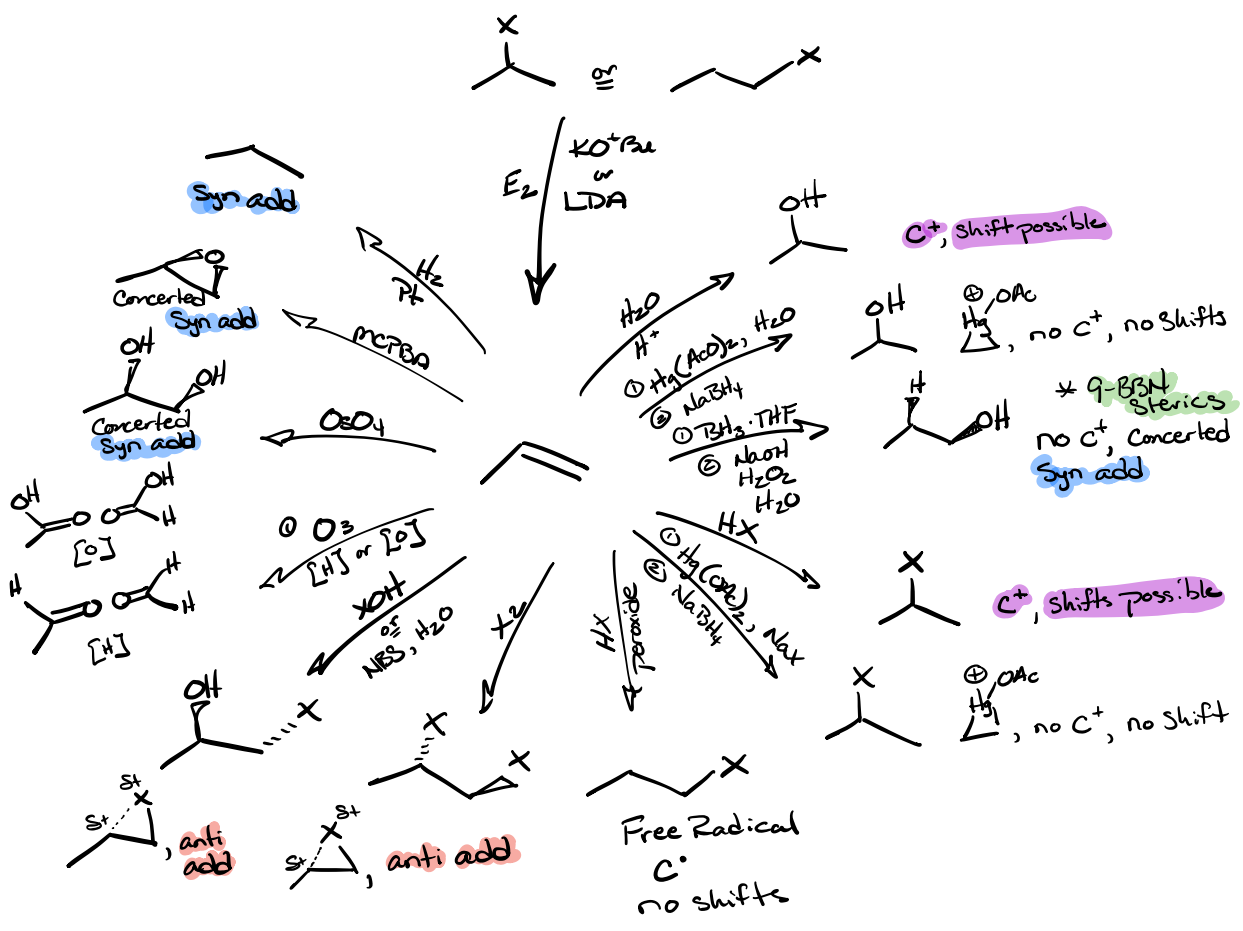 X
or
X
E2
KO+Bu
or
LDA
Syn add
H2
Pt
O
Concerted
Syn add
MCPBA
OH
OH
Concerted
Syn add
OsO4
OH
O
O
OH
H
[O]
① O3
[H] or [O]
H
O
O
H
H
[H]
XOH
or
NBS, H2O
OH
X
δ+
X
δ+
, anti
add
X2
X
X
δ+
X
δ+
, anti add
HX
peroxide
X
Free Radical
C•
no shifts
H2O
H+
OH
C+, shift possible
① Hg(AcO)2, H2O
② NaBH4
OH
⊕
Hg
OAc
, no C+, no shifts
① BH3·THF
② NaOH
H2O2
H2O
H
OH
* 9-BBN
sterics
no C+, Concerted
Syn add
HX
X
C+, shifts possible
① Hg(OAc)2, NaX
② NaBH4
X
⊕
Hg
OAc
, no C+, no shift